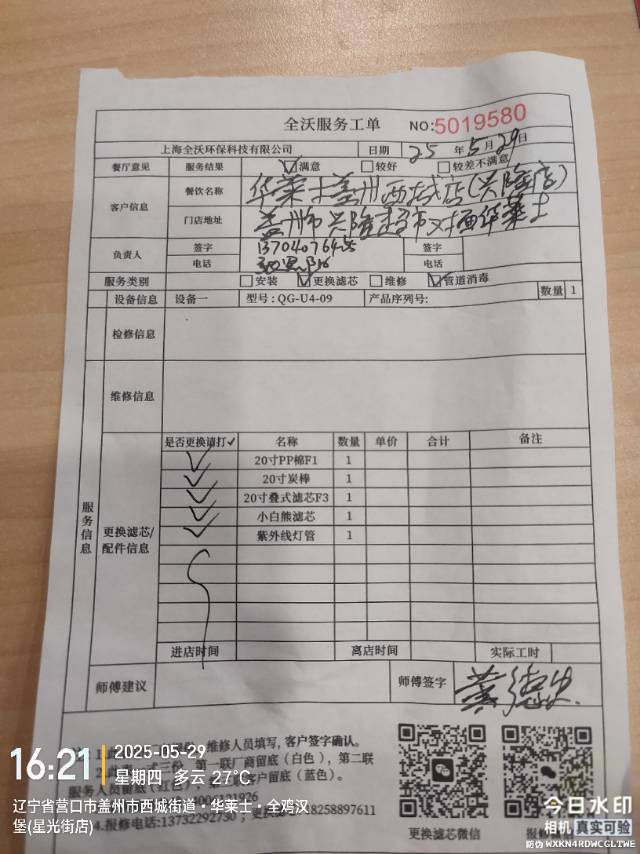 全沃服务工单 NO:5019580
上海全沃环保科技有限公司 日期 25年5月29日
餐厅意见 服务结果 ☑满意 □较好 □较差不满意
客户信息 餐饮名称 华莱士盖州西城店(兴隆店)
门店地址 盖州市兴隆超市对面华莱士
负责人 签字 签字
电话 电话
服务类别 □安装 ☑更换滤芯 □维修 ☑管道消毒
设备信息 设备一 型号:QG-U4-09 产品序列号: 数量 1
检修信息
维修信息
服务信息
更换滤芯/配件信息
是否更换请打✓ 名称 数量 单价 合计 备注
✓ 20寸PP棉F1 1
✓ 20寸炭棒 1
✓ 20寸叠式滤芯F3 1
✓ 小白熊滤芯 1
✓ 紫外线灯管 1
进店时间 离店时间 实际工时
师傅建议 师傅签字
维修人员填写,客户签字确认。
一式三份,第一联厂商留底(白色),第二联
客户留底(蓝色)。
4.报修电话:13732292730
18258897611
更换滤芯微信
16:21
2025-05-29
星期四 多云 27℃
辽宁省营口市盖州市西城街道·华莱士·全鸡汉
堡(星光街店)
今日水印
相机 真实可验
防伪 WXKN4RDWCGLTWE